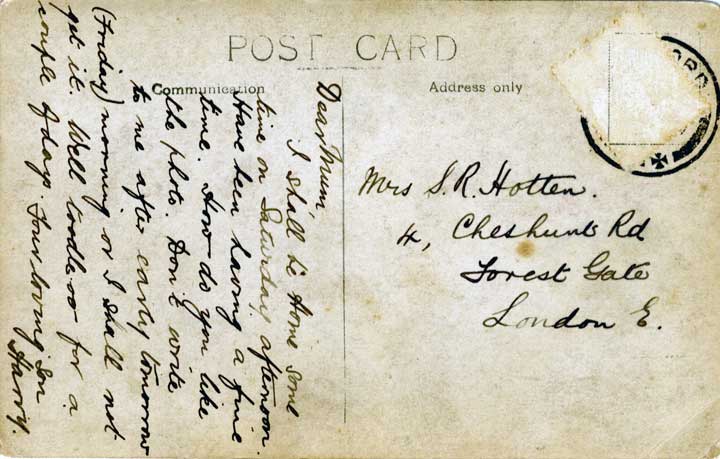 POST CARD
Communication
Address only
Dear Mum
I shall be Home some
time on Saturday afternoon.
Have been having a fine
time. How do you like
the photo. Don't write
to me after early tomorrow
(Friday) morning or I shall not
get it. Well toodleoo for a
couple of days. Your loving son
Harry.
Mrs S. R. Hotten.
4, Cheshunt Rd
Forest Gate
London E.